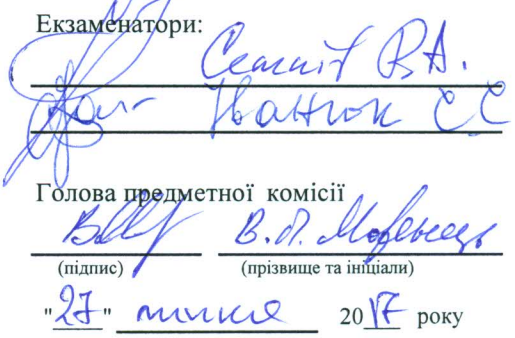 Екзаменатори:
В.А.
Іванюк Є Є
Голова предметної комісії
В. П. Моренець
(підпис) (прізвище та ініціали)
"27" липня 2017 року